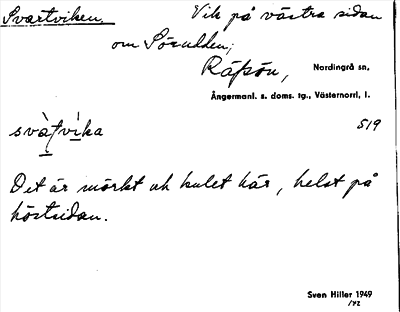 Svartviken. Vik på västra sidan
om Sörudden;
Räfsön, Nordingrå sn,
Ångermanl. s. doms. tg., Västernorrl. l.
svàtvìka 519
Det är mörkt ock kulet här, helst på
höstsidan.
Sven Hiller 1949
/YZ